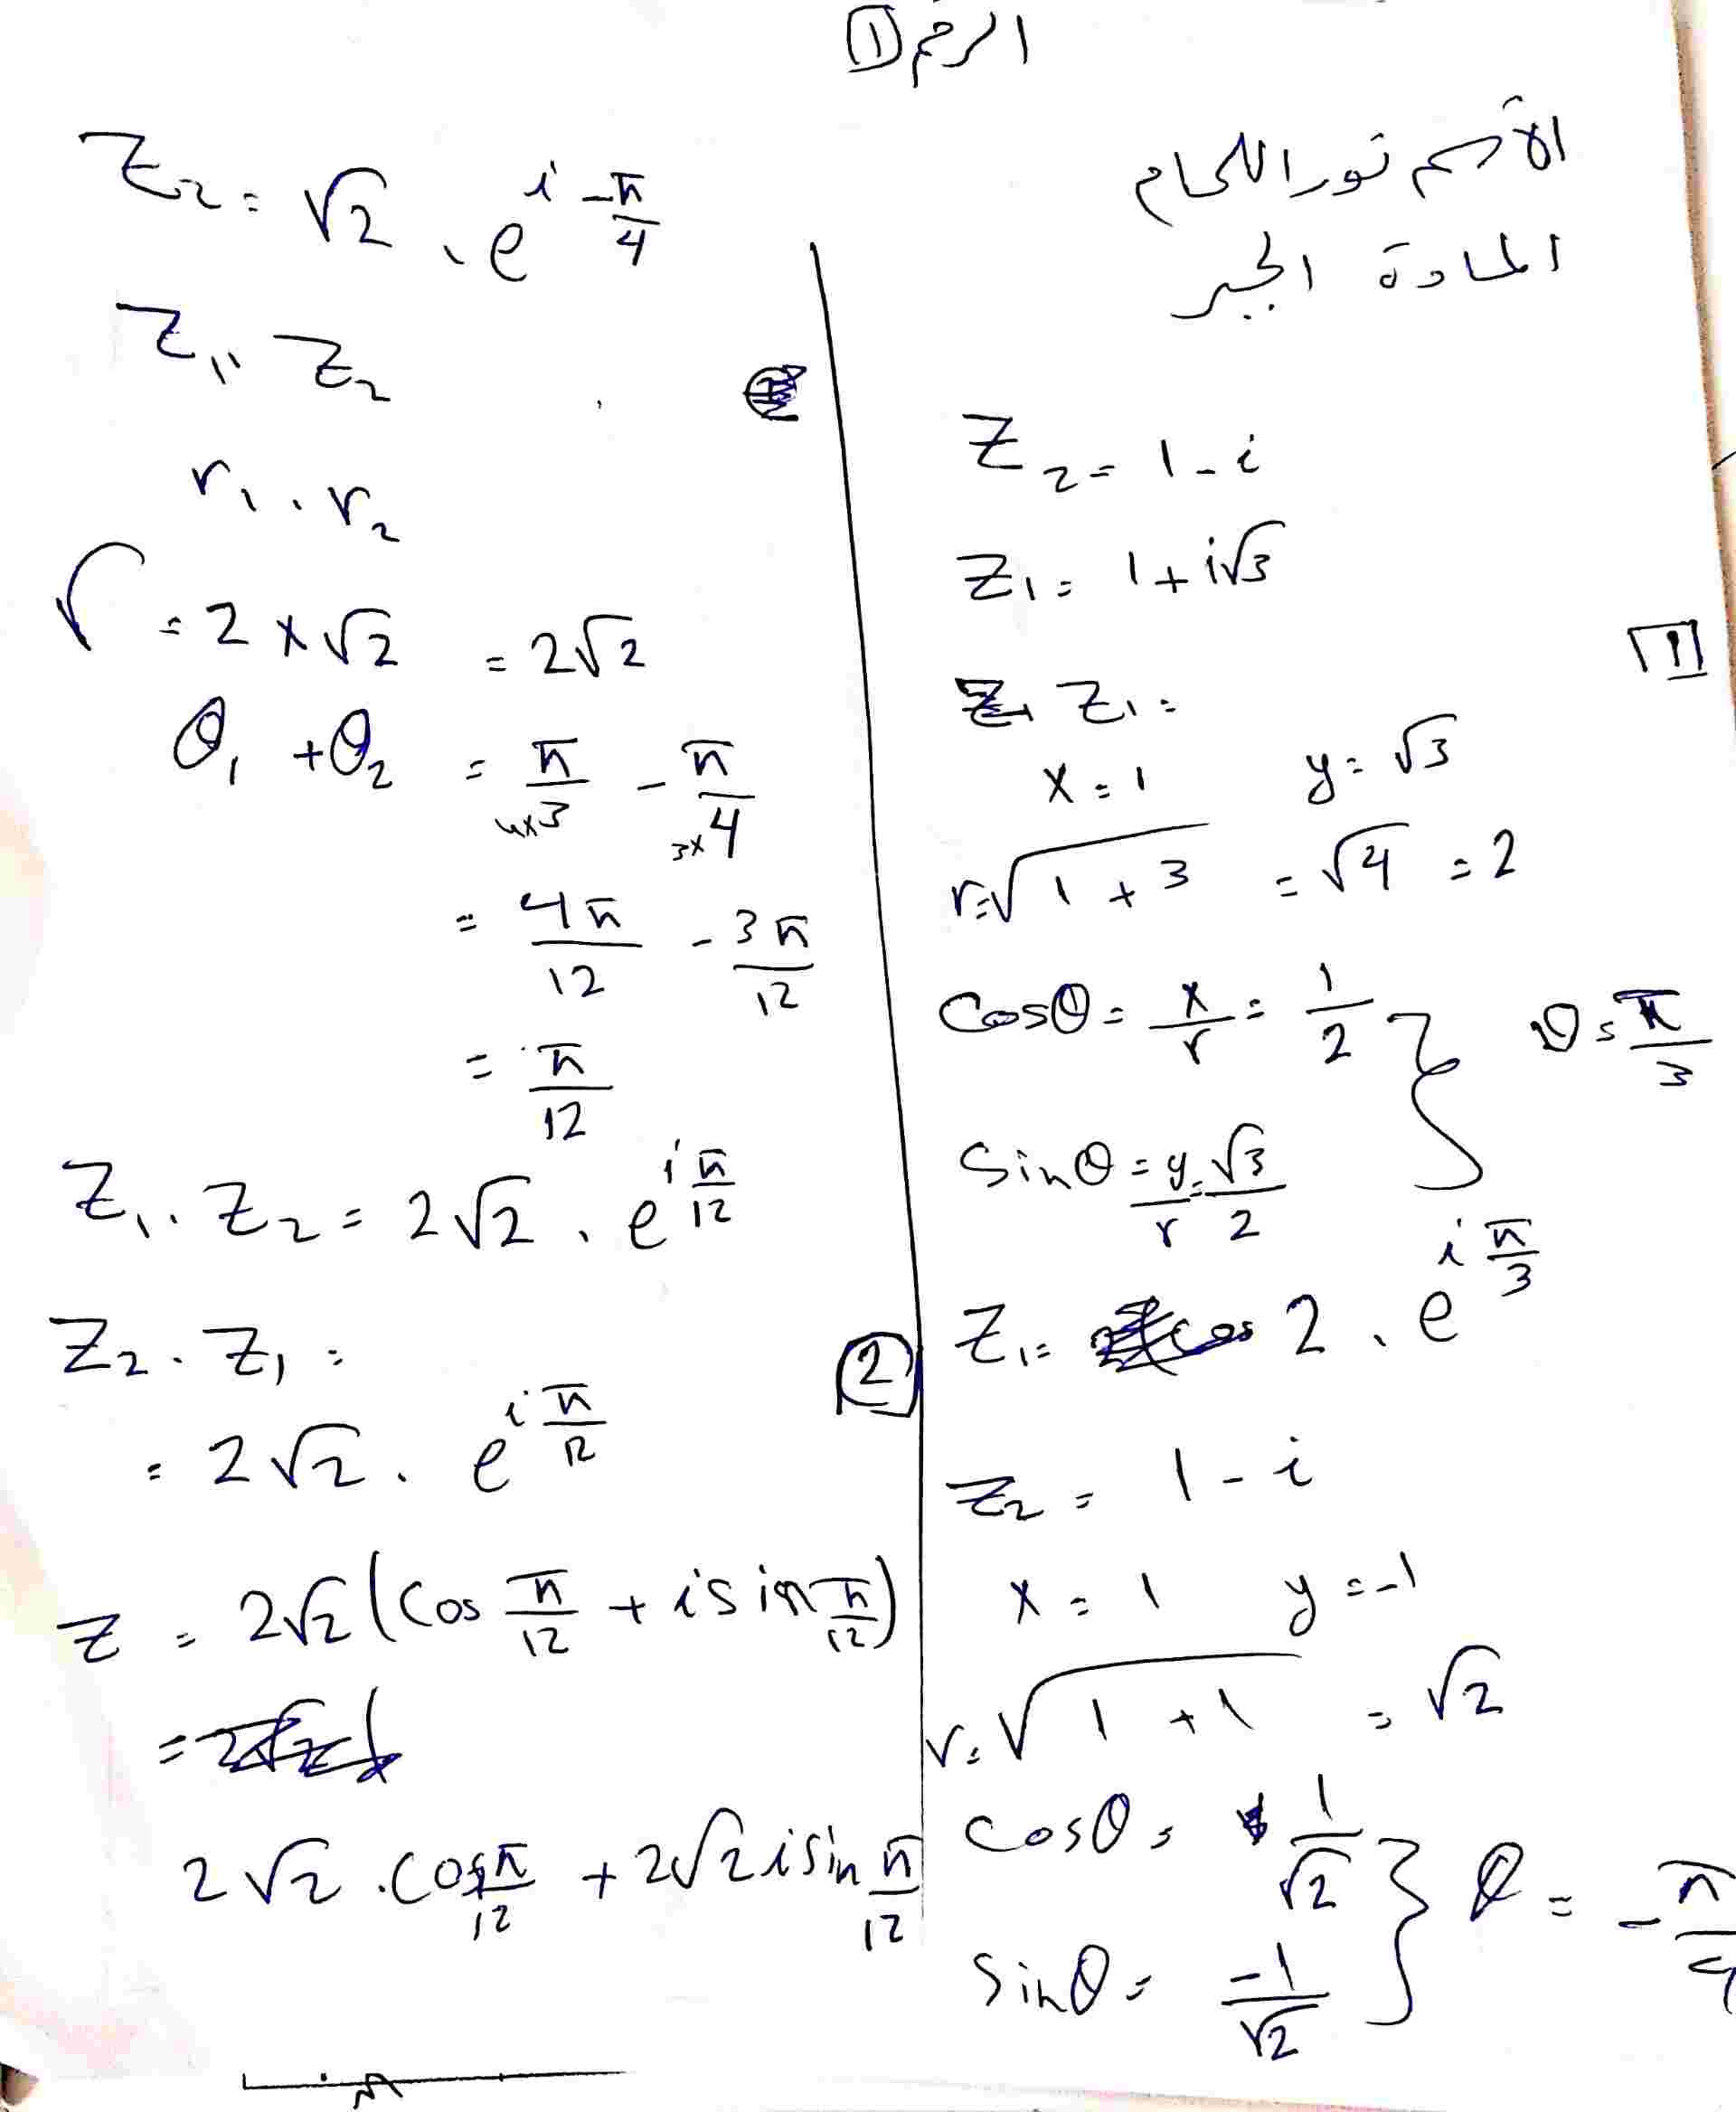 الرقم 1
الأسم نور اللحام
المادة الجبر
Z₂ = 1 - i
Z₁ = 1 + i√3
1
Z₁ =
x = 1 y = √3
r = √(1 + 3) = √4 = 2
Cosθ = x/r = 1/2 } θ = π/3
Sinθ = y/r = √3/2
Z₁ = 2 . e^(i π/3)
Z₂ = 1 - i
x = 1 y = -1
r = √(1 + 1) = √2
Cosθ = 1/√2 } θ = -π/4
Sinθ = -1/√2
Z₂ = √2 . e^(i -π/4)
Z₁ . Z₂
r₁ . r₂
r = 2 × √2 = 2√2
θ₁ + θ₂ = π/(4×3) - π/(3×4)
= 4π/12 - 3π/12
= π/12
Z₁ . Z₂ = 2√2 . e^(i π/12)
2
Z₂ . Z₁ =
= 2√2 . e^(i π/12)
Z = 2√2 (Cos π/12 + i sin π/12)
2√2 . Cos π/12 + 2√2 i Sin π/12